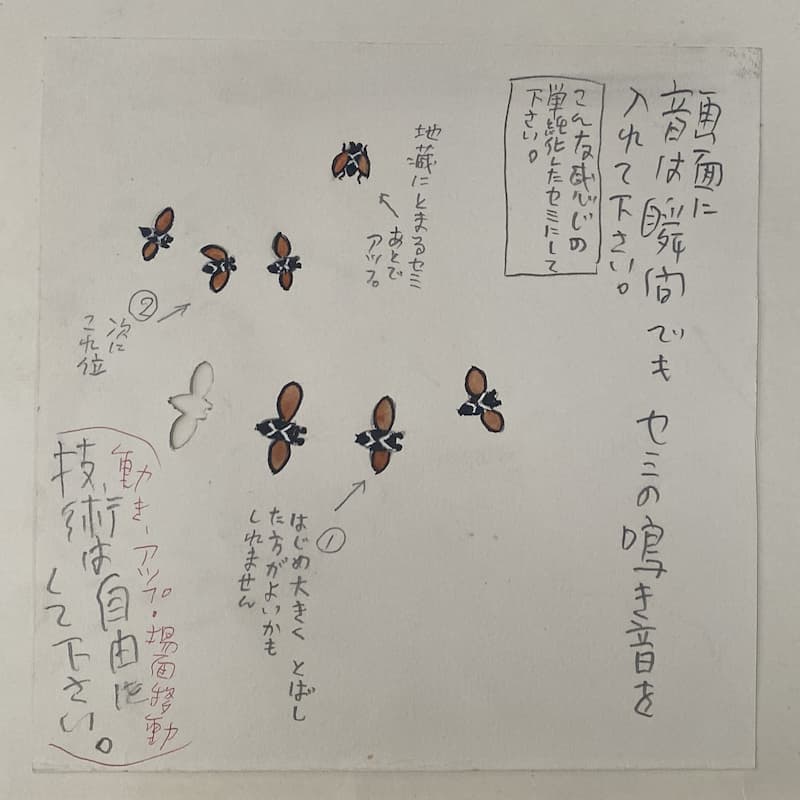 画面に
音は瞬間でも セミの鳴き音を
入れて下さい。
こんな感じの
単純化したセミにして
下さい。
地蔵にとまるセミ
あとで
アップ。
②
次に
これ位
①
はじめ大きく とばし
た方がよいかも
しれません
動き、アップ・場面移動
技術は自由に
して下さい。